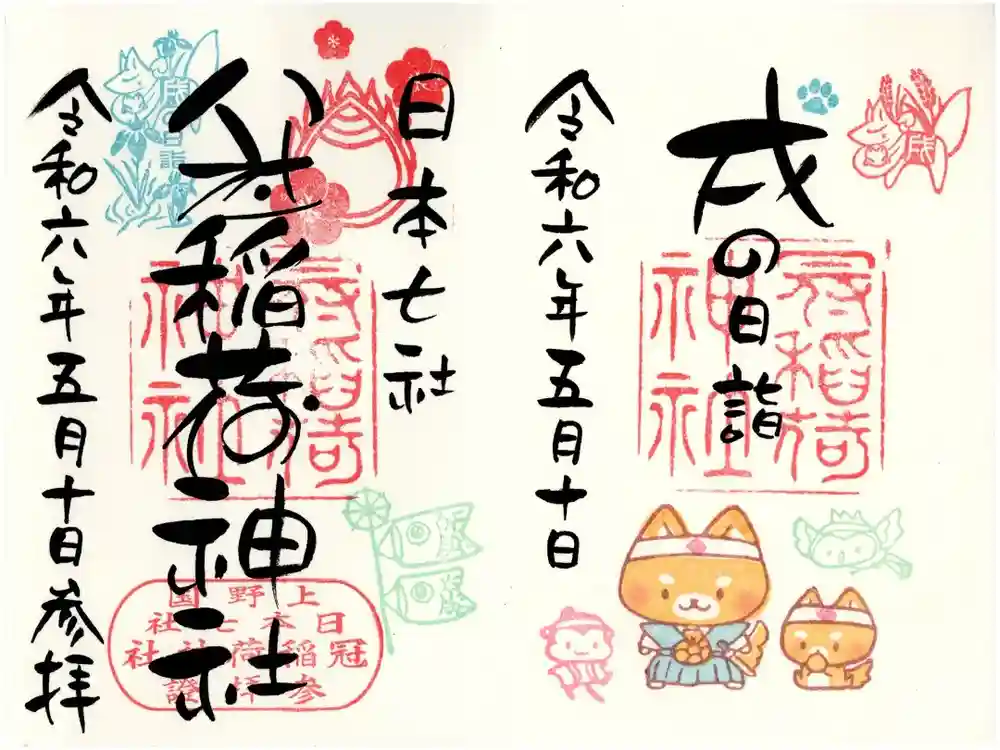 戌の日詣
戌
冠稲荷
神社
令和六年五月十日
日本七社
冠稲荷神社
冠稲荷
神社
戌日詣
上野国
日本七社
冠稲荷神社
参拝證
令和六年五月十日参拝